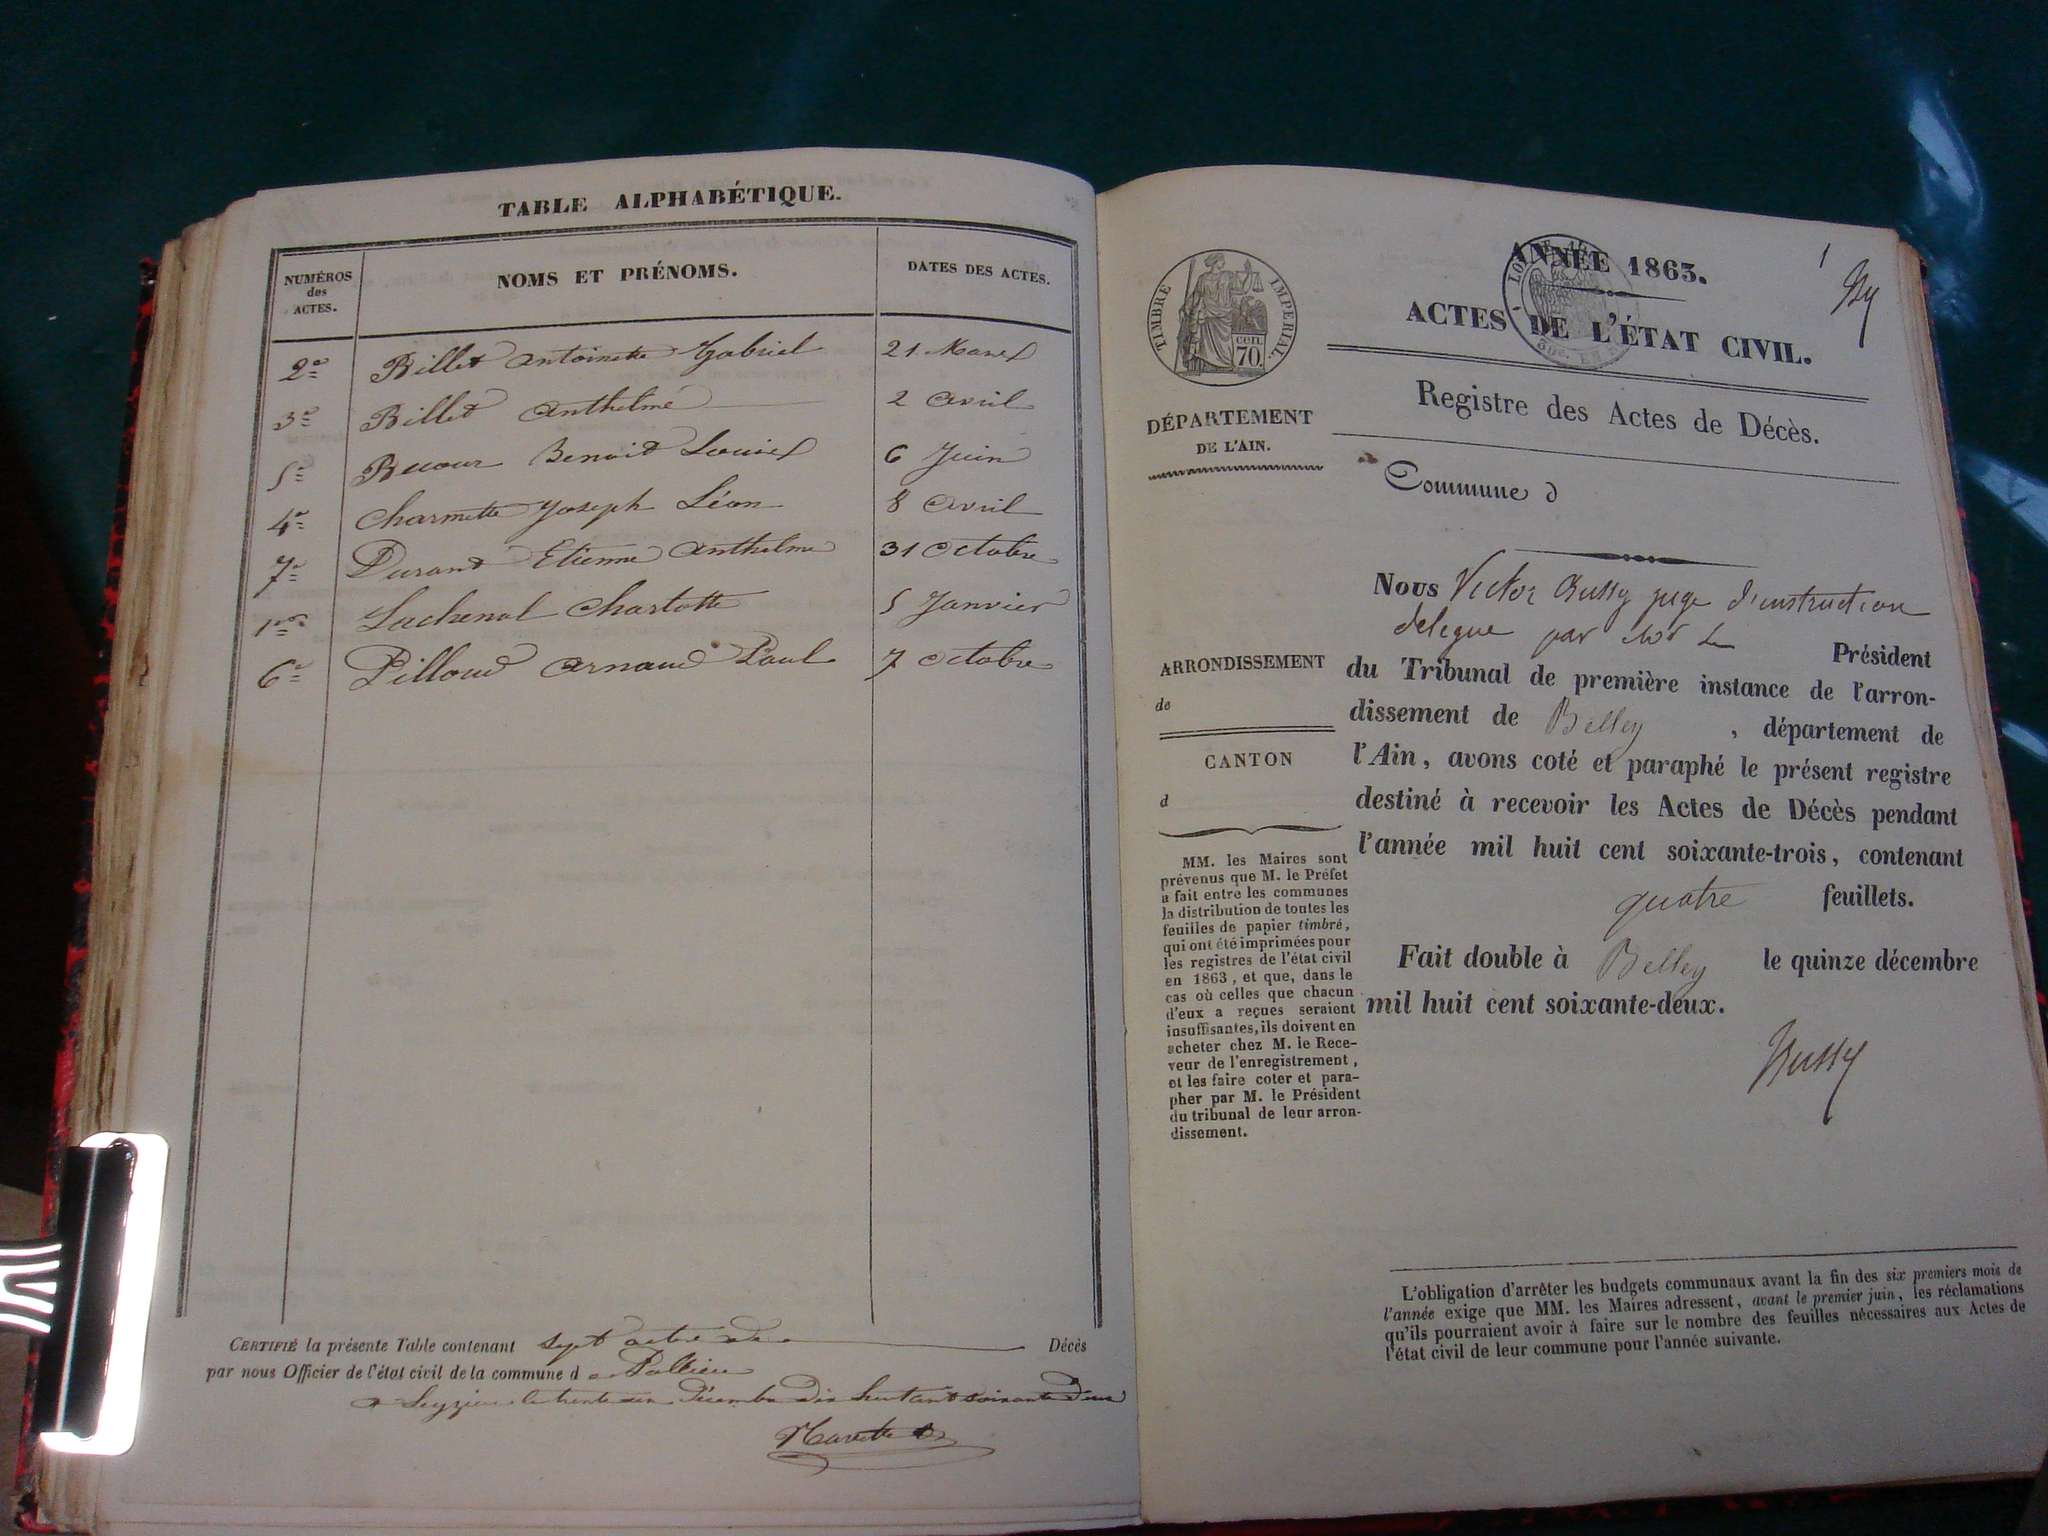 TABLE ALPHABÉTIQUE.
NUMÉROS
des
ACTES.
NOMS ET PRÉNOMS.
DATES DES ACTES.
2e Billet Antoinette Gabriel 21 Mars
3e Billet Anthelme 2 Avril
5e Benoit Louise 6 Juin
4e Charmette Joseph Léon 8 Avril
7e Durand Etienne Anthelme 31 Octobre
1er Lachenal Charlotte 5 Janvier
6e Pilloud Arnaud Paul 7 Octobre
CERTIFIÉ la présente Table contenant sept actes de Décès
par nous Officier de l'état civil de la commune d
le trente un Décembre huit cent soixante deux
1
ANNÉE 1863.
TIMBRE IMPERIAL.
cen.
70.
ACTES DE L'ÉTAT CIVIL.
Registre des Actes de Décès.
DÉPARTEMENT
DE L'AIN.
Commune d
Nous Victor Bussy juge d'instruction
delegue par Mr Le Président
du Tribunal de première instance de l'arron-
dissement de Belley, département de
l'Ain, avons coté et paraphé le présent registre
destiné à recevoir les Actes de Décès pendant
l'année mil huit cent soixante-trois, contenant
quatre feuillets.
Fait double à Belley le quinze décembre
mil huit cent soixante-deux.
Bussy
ARRONDISSEMENT
de
CANTON
d
MM. les Maires sont
prévenus que M. le Préfet
a fait entre les communes
la distribution de toutes les
feuilles de papier timbré,
qui ont été imprimées pour
les registres de l'état civil
en 1863, et que, dans le
cas où celles que chacun
d'eux a reçues seraient
insuffisantes, ils doivent en
acheter chez M. le Rece-
veur de l'enregistrement,
et les faire coter et para-
pher par M. le Président
du tribunal de leur arron-
dissement.
L'obligation d'arrêter les budgets communaux avant la fin des six premiers mois de
l'année exige que MM. les Maires adressent, avant le premier juin, les réclamations
qu'ils pourraient avoir à faire sur le nombre des feuilles nécessaires aux Actes de
l'état civil de leur commune pour l'année suivante.